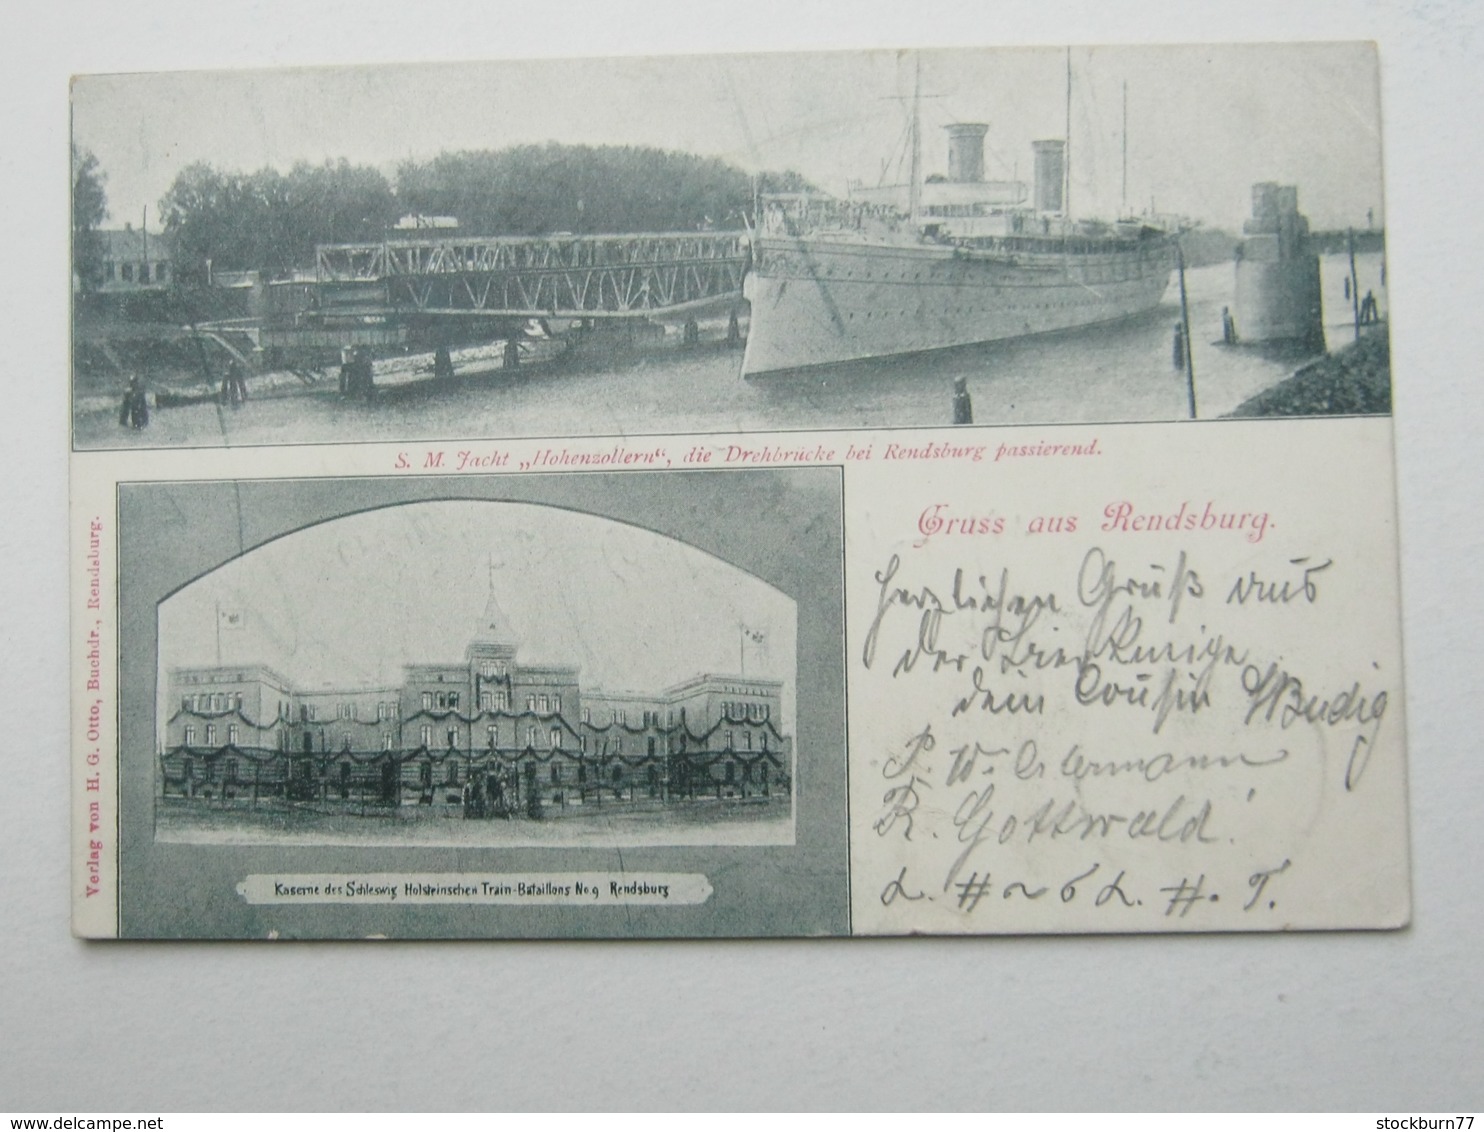 S. M. Jacht „Hohenzollern“, die Drehbrücke bei Rendsburg passierend.
Verlag von H. G. Otto, Buchdr., Rendsburg.
Gruss aus Rendsburg.
Herzlichen Gruß aus
der
dein Cousin
P. W. Ostermann
R. Gottwald!
Kaserne des Schleswig Holsteinschen Train-Bataillons No. 9 Rendsburg
stockburn77